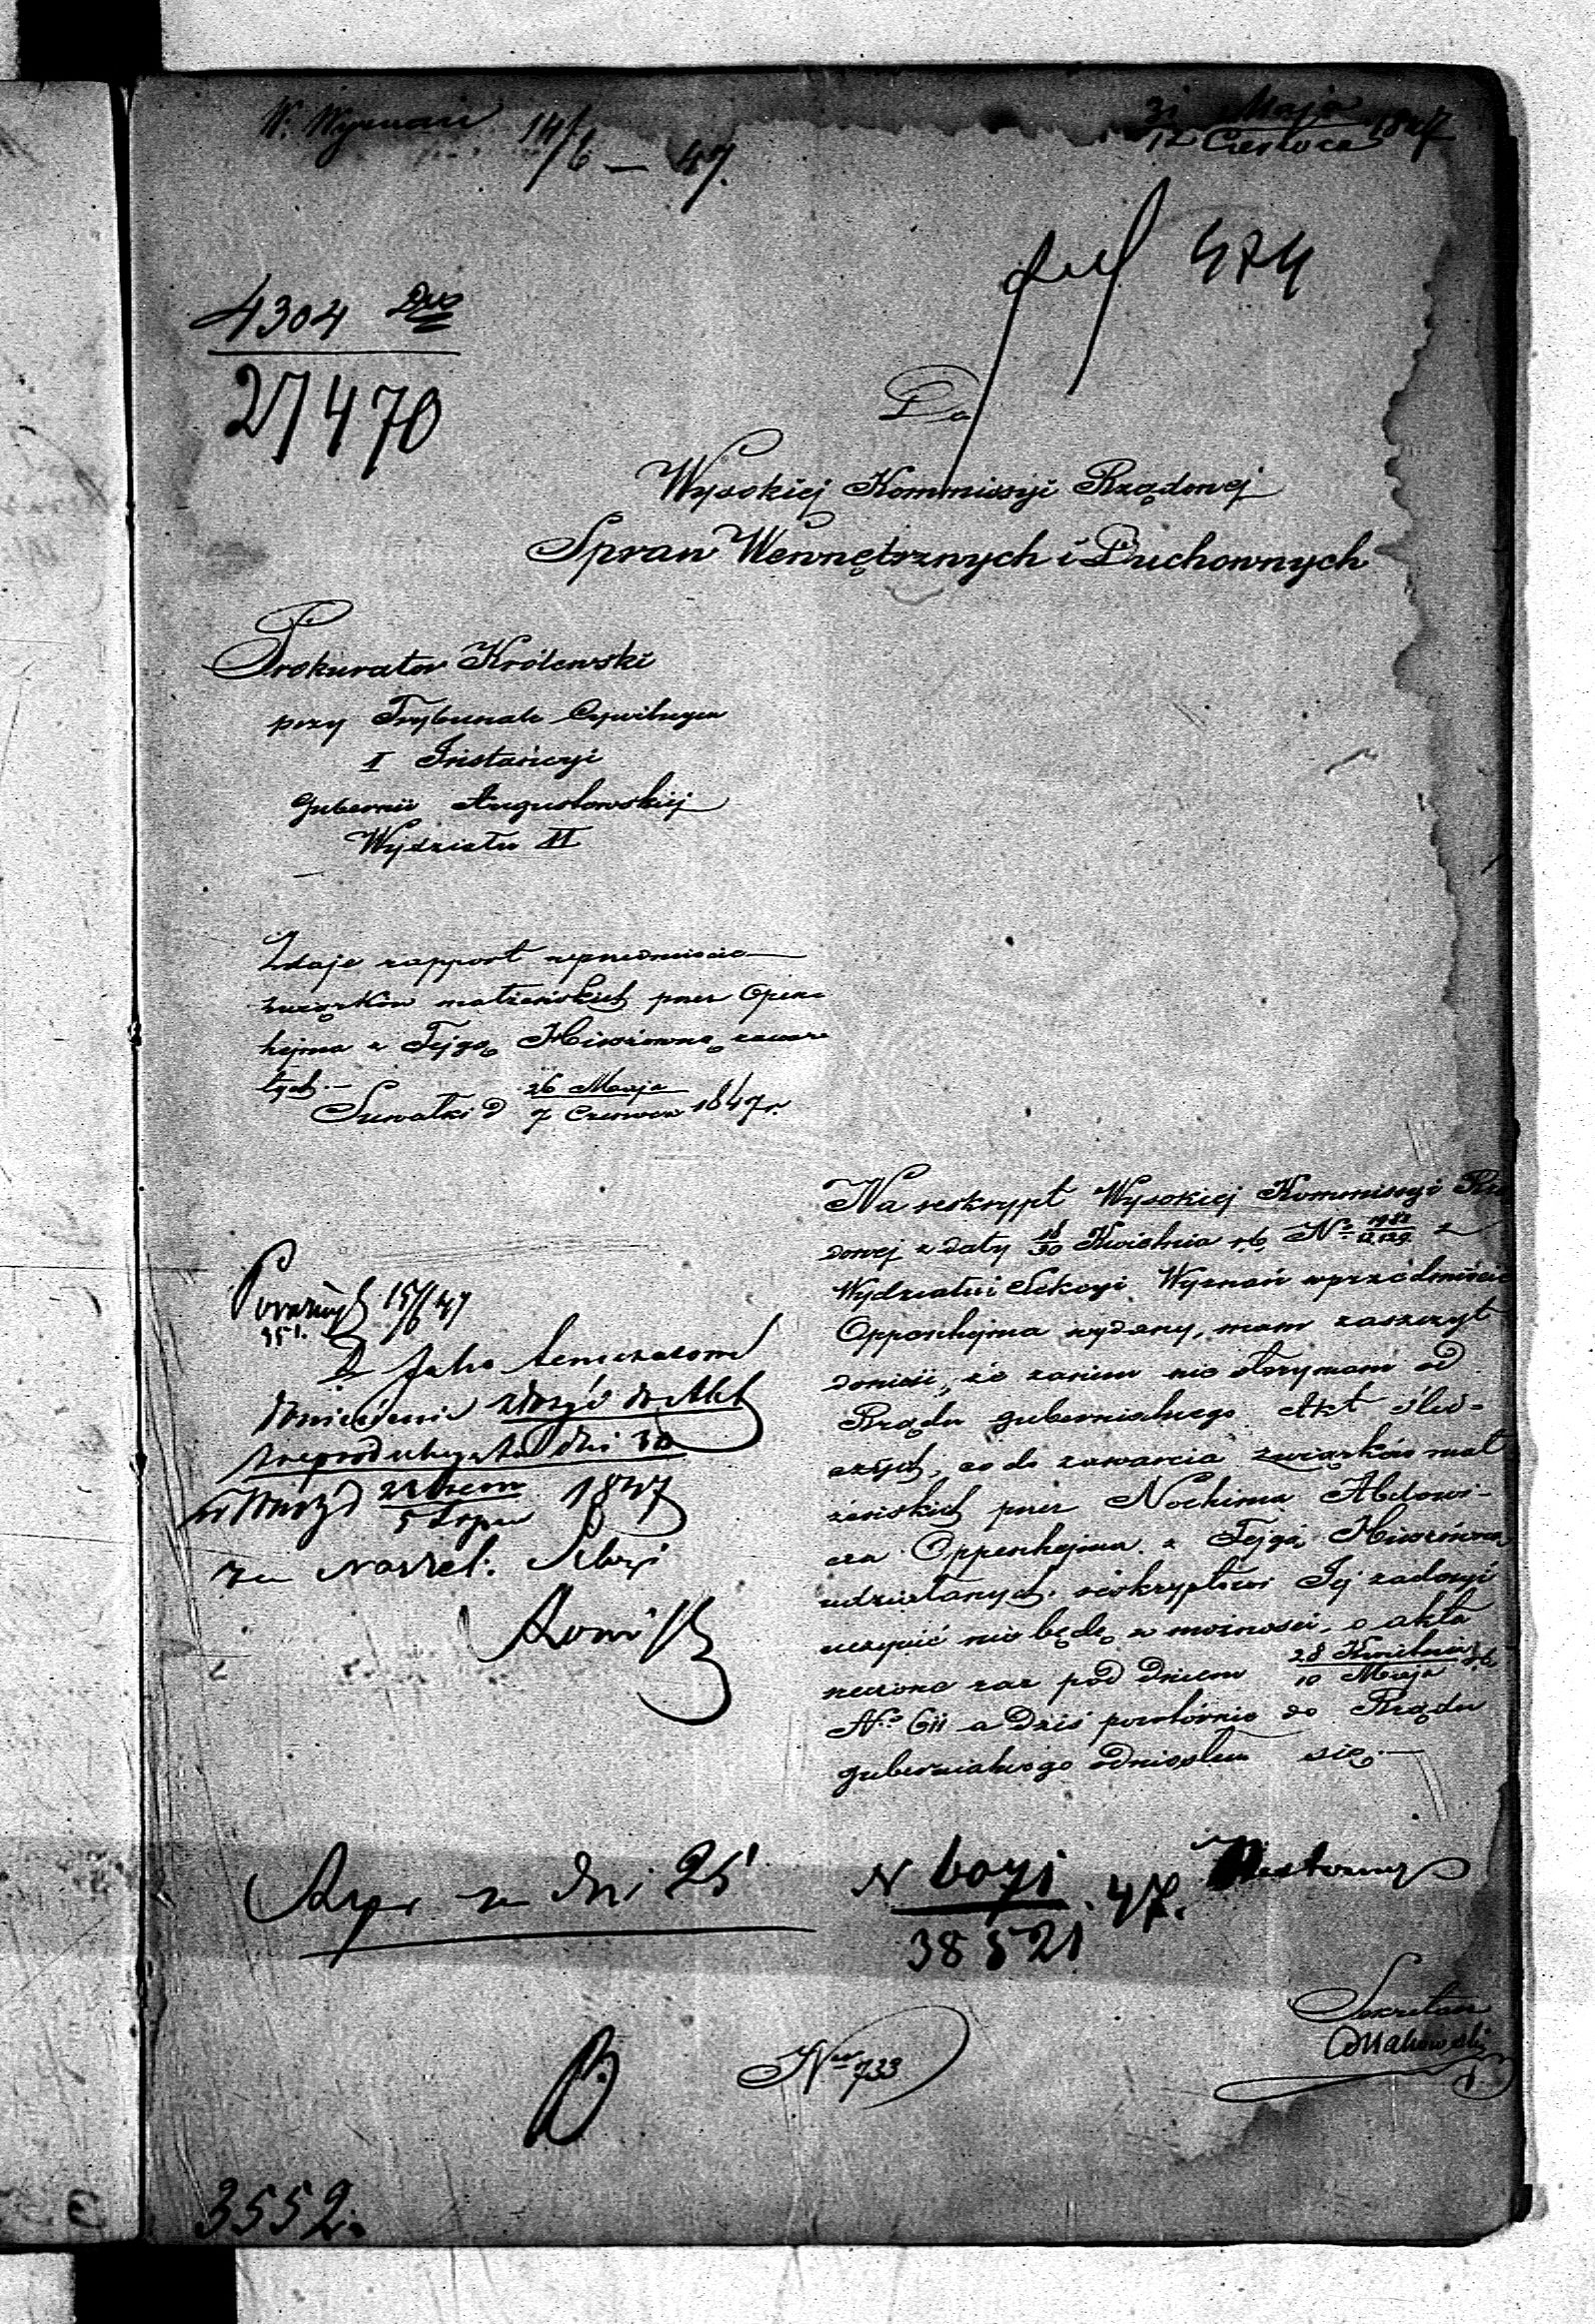 W. Wyznań 14/6 — 47.
31 Maja
12 Czerwca 1847
474
4304
27470
Do
Wysokiej Kommissyi Rządowej
Spraw Wewnętrznych i Duchownych
Prokurator Królewski
przy Trybunale Cywilnym
I Instancyi
Gubernii Augustowskiej
Wydziału II
Zdaje rapport w przedmiocie
związków małżeńskich przez Open-
hejma z Fejgą Hirszówną zawar-
tych.—
Suwałki d 26 Maja
7 Czerwca 1847 r.
Na reskrypt Wysokiej Kommissyi Rzą
dowej z daty 18/30 Kwietnia r.b. N°
Wydziału i Sekcyi Wyznań w przedmiocie
Oppenhejma wydany, mam zaszczyt
donieść, że zanim nie otrzymam od
Rządu gubernialnego Akt śled-
czych, co do zawarcia związków mał
żeńskich przez Nochima Abelowi-
cza Oppenhejma z Fejgą Hirszówną
udziałanych, reskryptowi Jej zadosyć
uczynić nie będę w możności, o akta
rzeczone raz pod dniem 28 Kwietnia
10 Maja r.b.
N° 611 a dziś powtórnie do Rządu
gubernialnego odniosłem się.—
15/6 47
Jako tymczasowe
doniesienie złożyć do Akt
i reprodukcya za dni 30
w Warsz d 23 Czerw
5 Lipca 1847
Za Naczel. Sekcyi
za dni 25
N 6071
38521 . 47.
Sekretarz
Makowski
N° 733
3552.